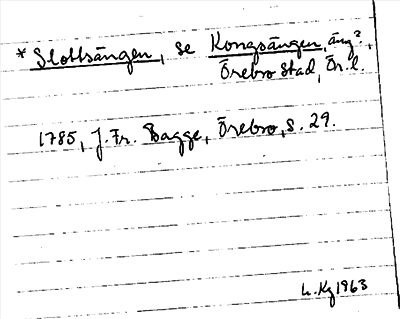 * Slottsängen, se Kongsängen, äng?,
Örebro Stad, Ör. l.
1785, J. Fr. Bagge, Örebro, S. 29.
L. Kg 1963